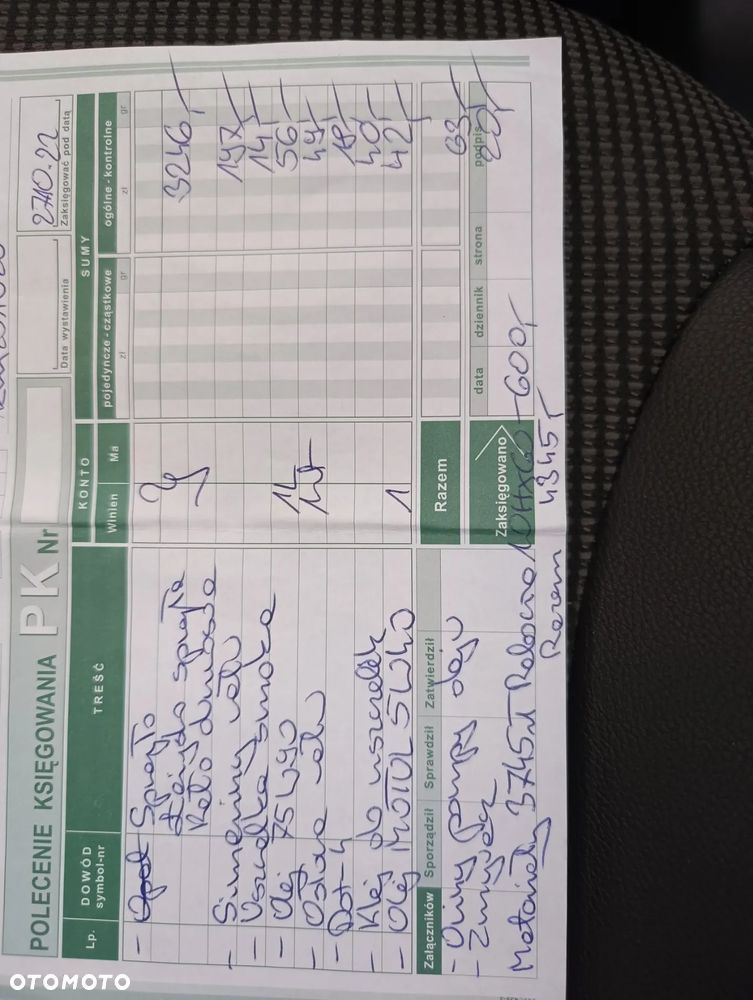 POLECENIE KSIĘGOWANIA PK Nr
27.10.22
Data wystawienia
Zaksięgować pod datą
Lp.
DOWÓD symbol-nr
TREŚĆ
KONTO
SUMY
Winien
Ma
pojedyncze - cząstkowe
ogólne - kontrolne
zł gr
zł gr
- Sprzęgło
Łożysko sprzęgła
Koło dwumasowe
3246,-
- Simeringi wału
147,-
- Uszczelka smoka
14,-
- Olej 75W90
56,-
- Osłona wału
49,-
- Dot-4
18,-
- Klej do uszczelek
40,-
- Olej MOTUL 5W40 1
42,-
Załączników
Sporządził
Sprawdził
Zatwierdził
Razem
- Oring pompy oleju
63,-
- Zmywacz
20,-
Zaksięgowano
data
dziennik
strona
podpis
Materiały 3745,- Robocizna 600,-
Razem 4345,-
OTOMOTO